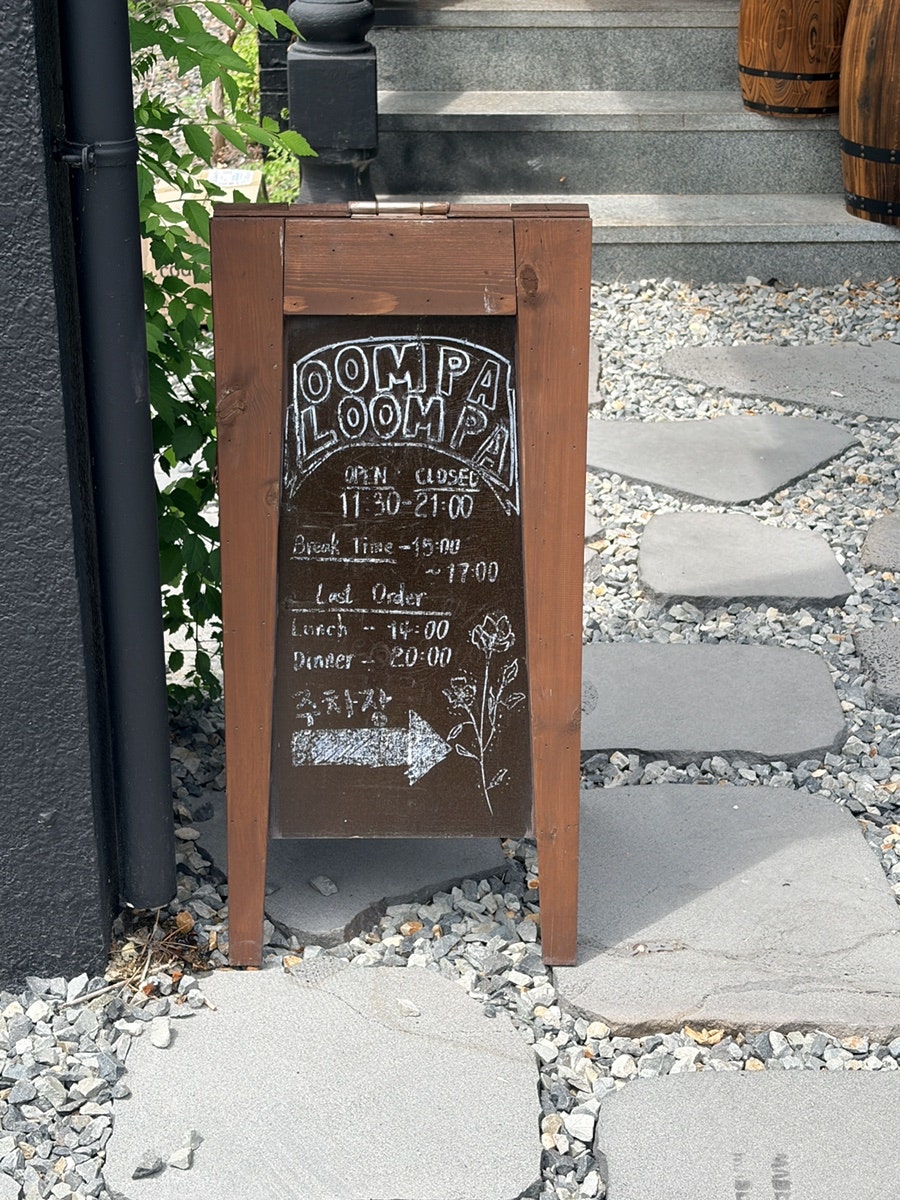 OOMPA
LOOMPA
OPEN CLOSED
11:30-21:00
Break Time - 15:00
~ 17:00
Last Order
Lunch - 14:00
Dinner - 20:00
주차장